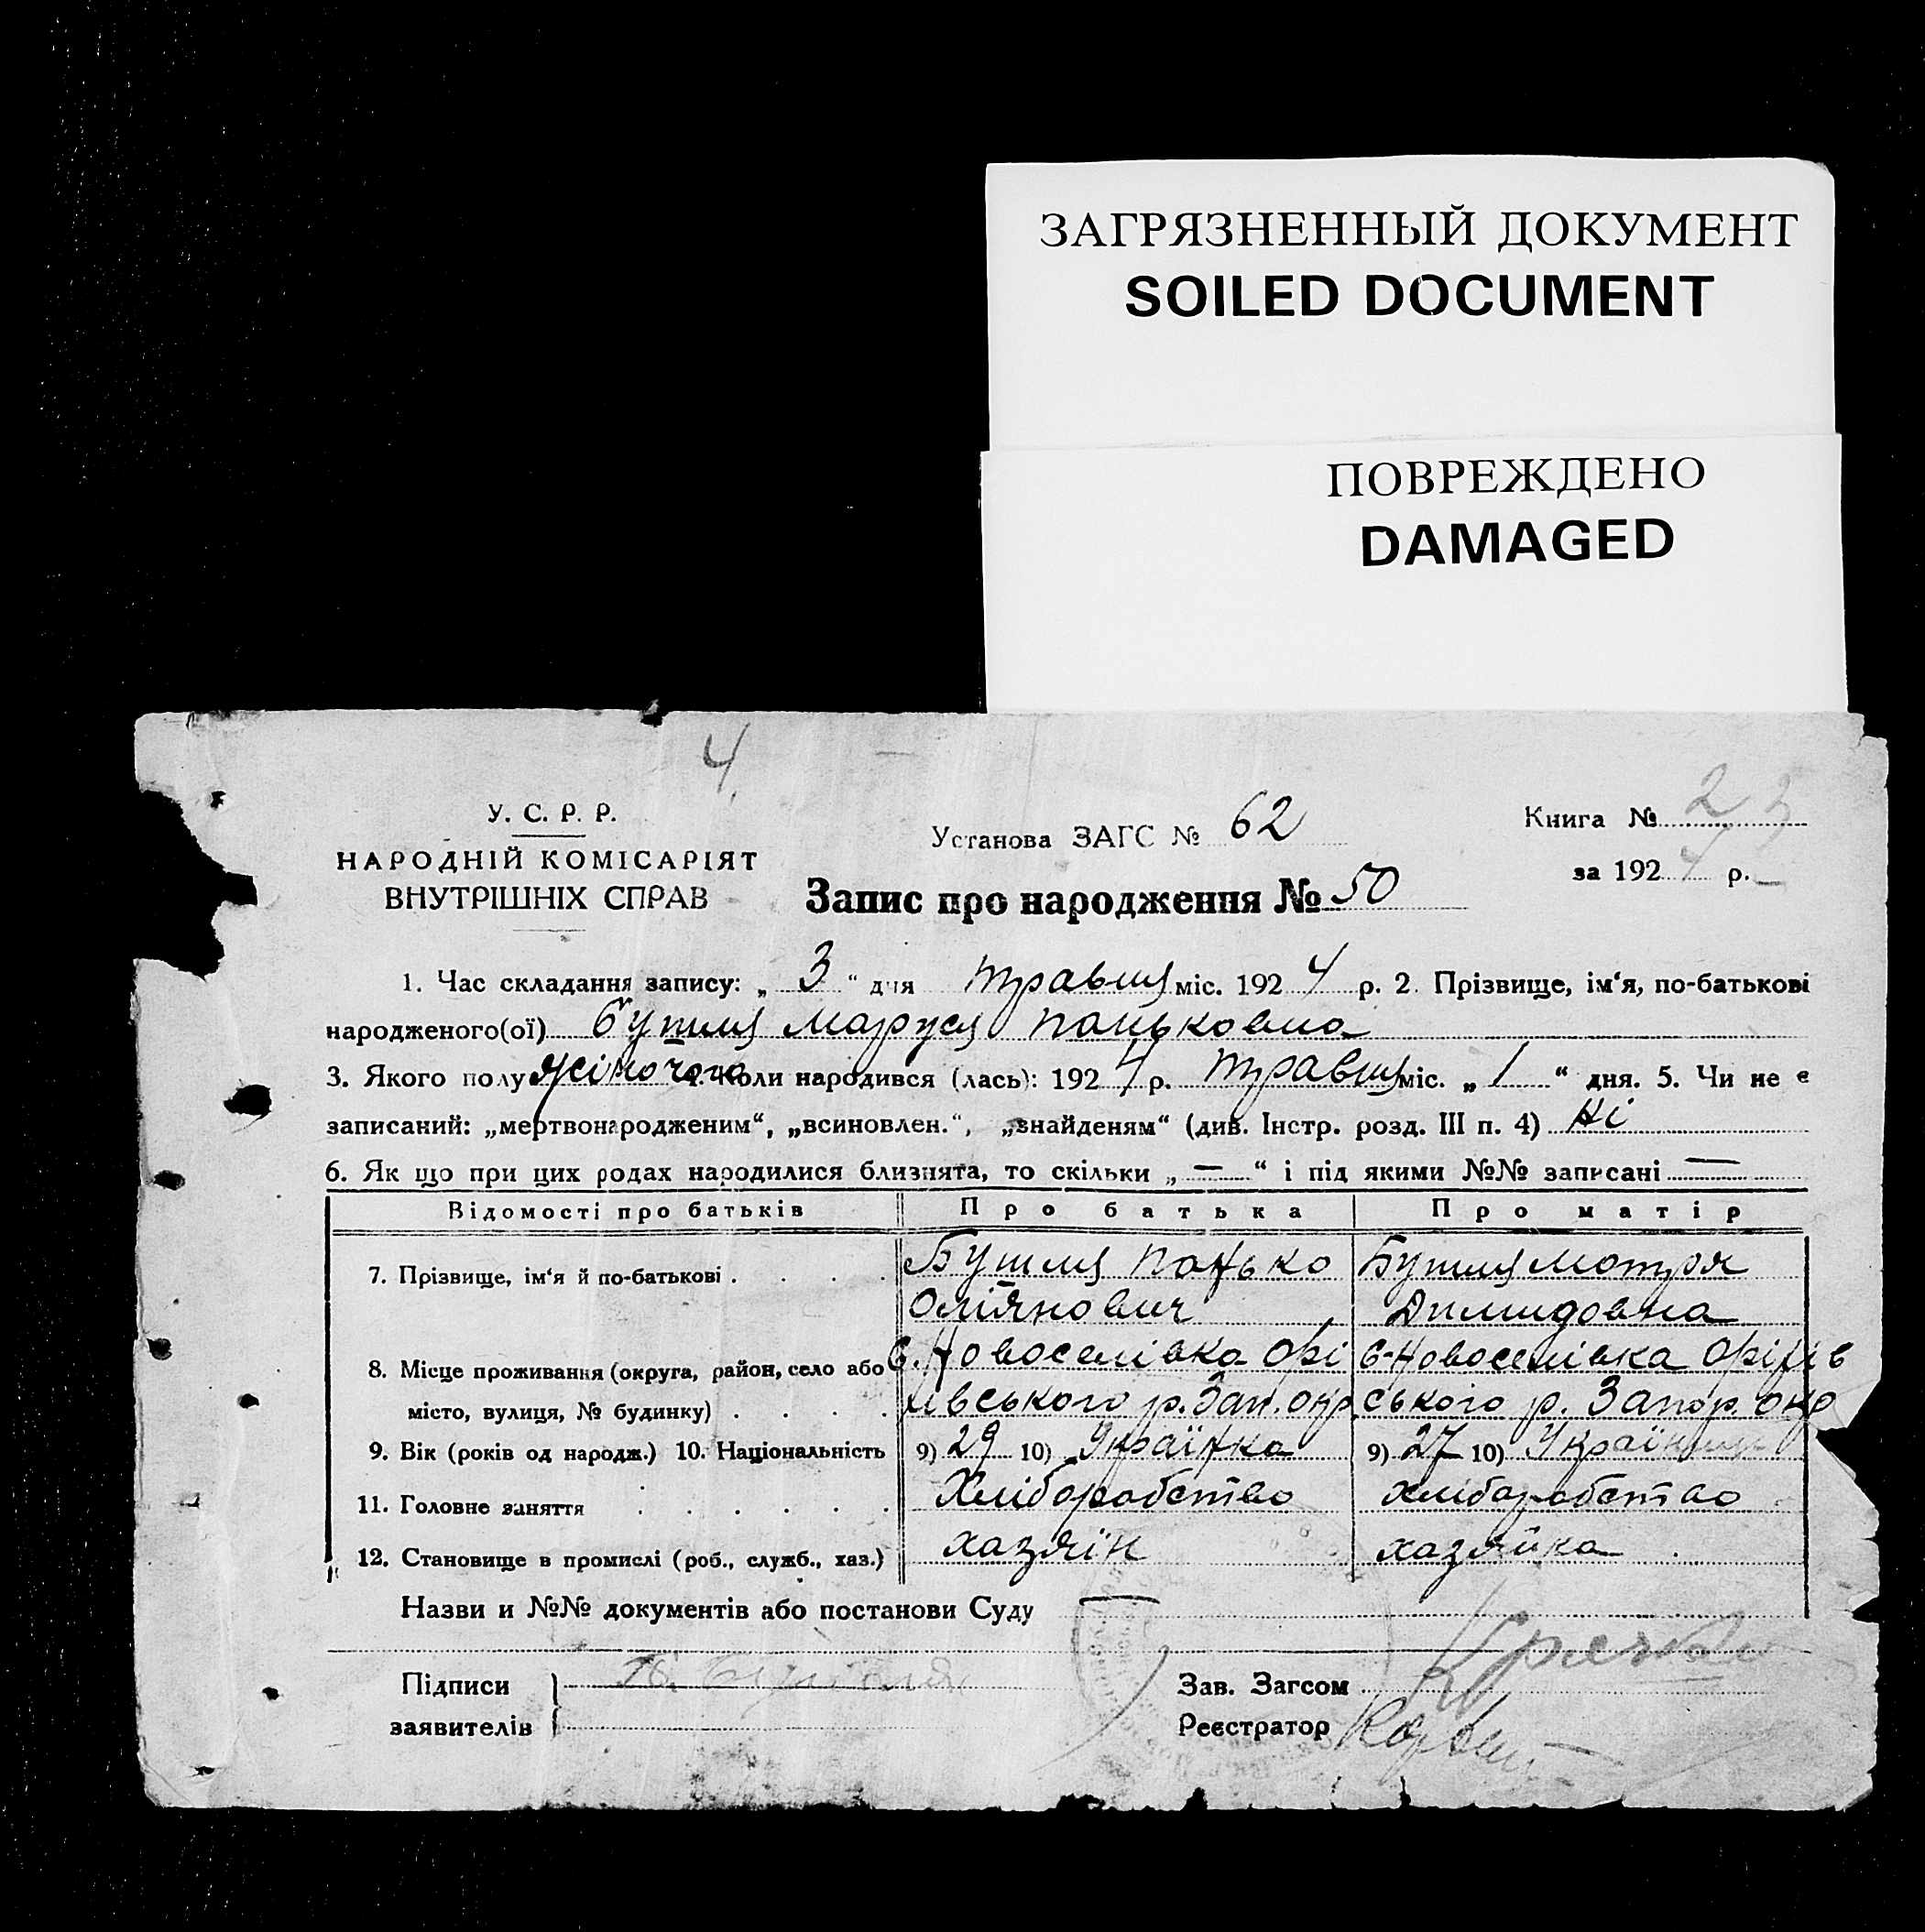 ЗАГРЯЗНЕННЫЙ ДОКУМЕНТ
SOILED DOCUMENT
ПОВРЕЖДЕНО
DAMAGED
4
У. С. Р. Р.
НАРОДНІЙ КОМІСАРІЯТ
ВНУТРІШНІХ СПРАВ
Установа ЗАГС № 62
Запис про народження № 50
Книга № 2
за 1924 р.
1. Час складання запису: „ 3 “ дня травня міс. 1924 р. 2. Прізвище, ім‘я, по-батькові
народженого(ої) Бутля Маруся Паньковна
3. Якого полу жіночого 4. Коли народився (лась): 1924 р. травня міс. „ 1 “ дня. 5. Чи не є
записаний: „мертвонародженим“, „всиновлен.“, „знайденям“ (див. Інстр. розд. III п. 4) Ні
6. Як що при цих родах народилися близнята, то скільки „ — “ і під якими №№ записані —
Відомості про батьків Про батька Про матір
7. Прізвище, ім‘я й по-батькові . . . . Бутля Панько Бутля Мотря
Омілянович Димидовна
8. Місце проживання (округа, район, село або с. Новоселівка Орі с-Новоселівка Оріхів
місто, вулиця, № будинку) . . . . хівського р. Зап. окр. ського р. Запор. окр
9. Вік (років од народж.) 10. Національність 9) 29 10) Українка 9) 27 10)
11. Головне заняття . . . . . . Хліборобство хліборобство
12. Становище в промислі (роб., служб., хаз.) хазяїн хазяйка
Назви и №№ документів або постанови Суду —
Підписи
заявителів
Зав. Загсом
Реєстратор